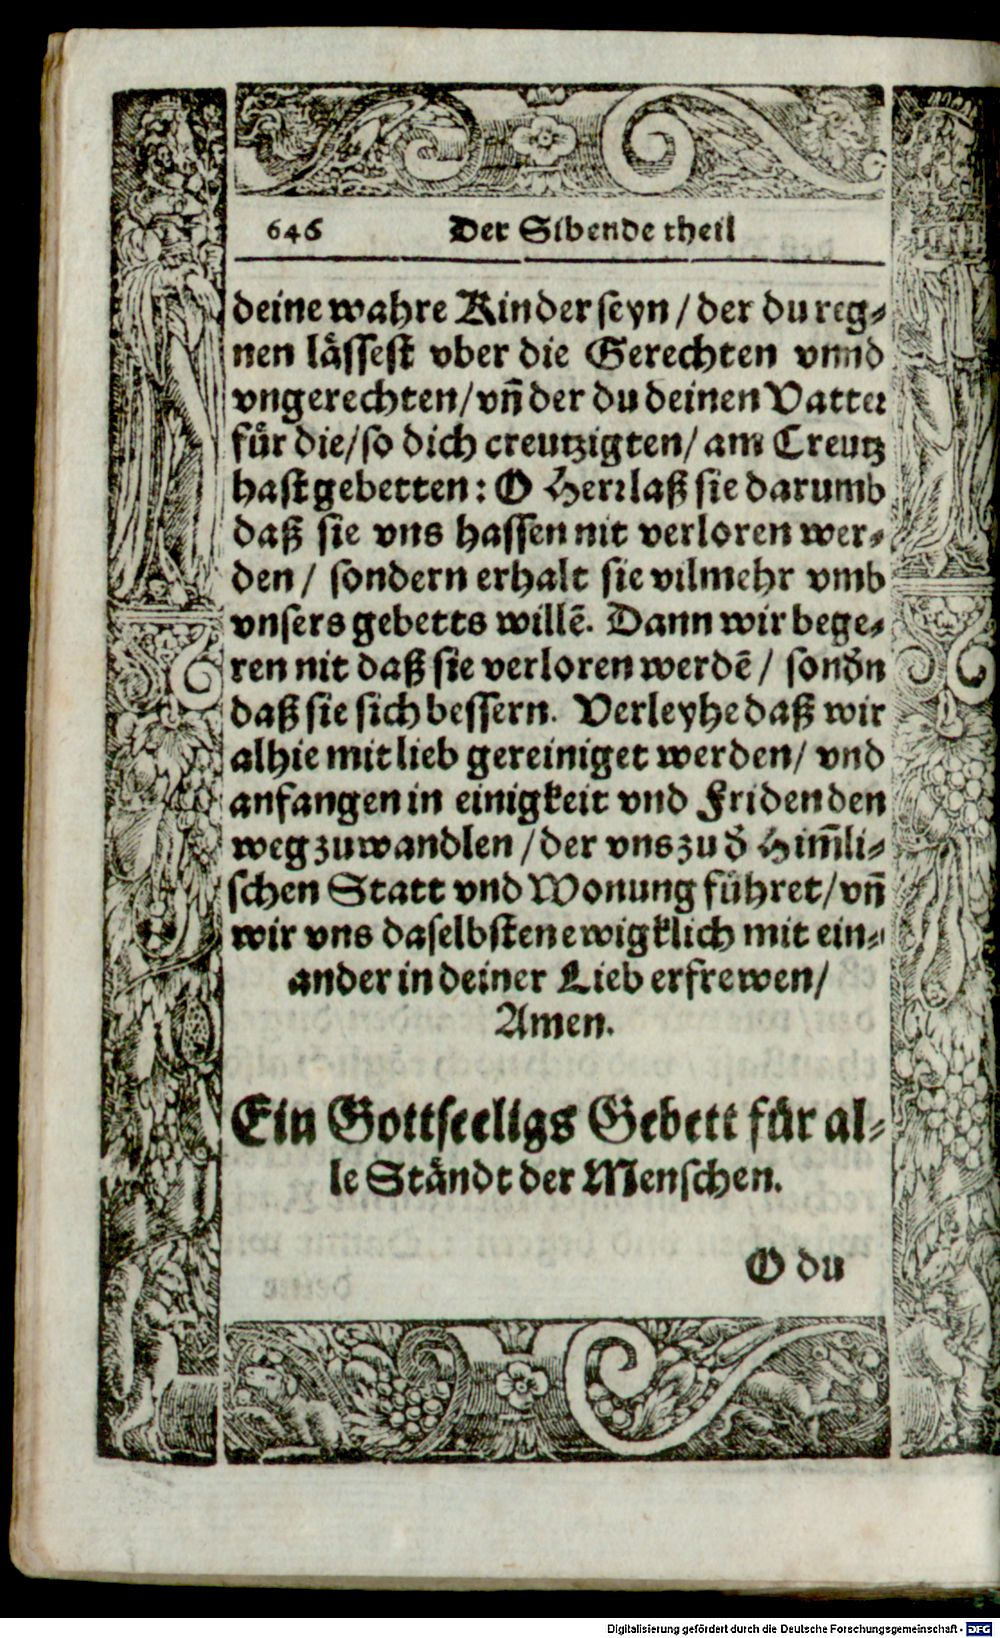 646 Der Sibende theil
deine wahre Kinder seyn / der du reg⸗
nen låssest vber die Gerechten vnnd
vngerechten / vn̄ der du deinen Vatter
fůr die / so dich creutzigten / am Creutz
hast gebetten: O Herr laß sie darumb
daß sie vns hassen nit verloren wer⸗
den / sondern erhalt sie vilmehr vmb
vnsers gebetts willē. Dann wir bege⸗
ren nit daß sie verloren werdē / sond̄n
daß sie sich bessern. Verleyhe daß wir
alhie mit lieb gereiniget werden / vnd
anfangen in einigkeit vnd Friden den
weg zuwandlen / der vns zu d̄ Him̄li⸗
schen Statt vnd Wonung fůhret / vn̄
wir vns daselbsten ewigklich mit ein⸗
ander in deiner Lieb erfrewen /
Amen.
Ein Gottseeligs Gebett fůr al⸗
le Ståndt der Menschen.
O du
Digitalisierung gefördert durch die Deutsche Forschungsgemeinschaft - DFG